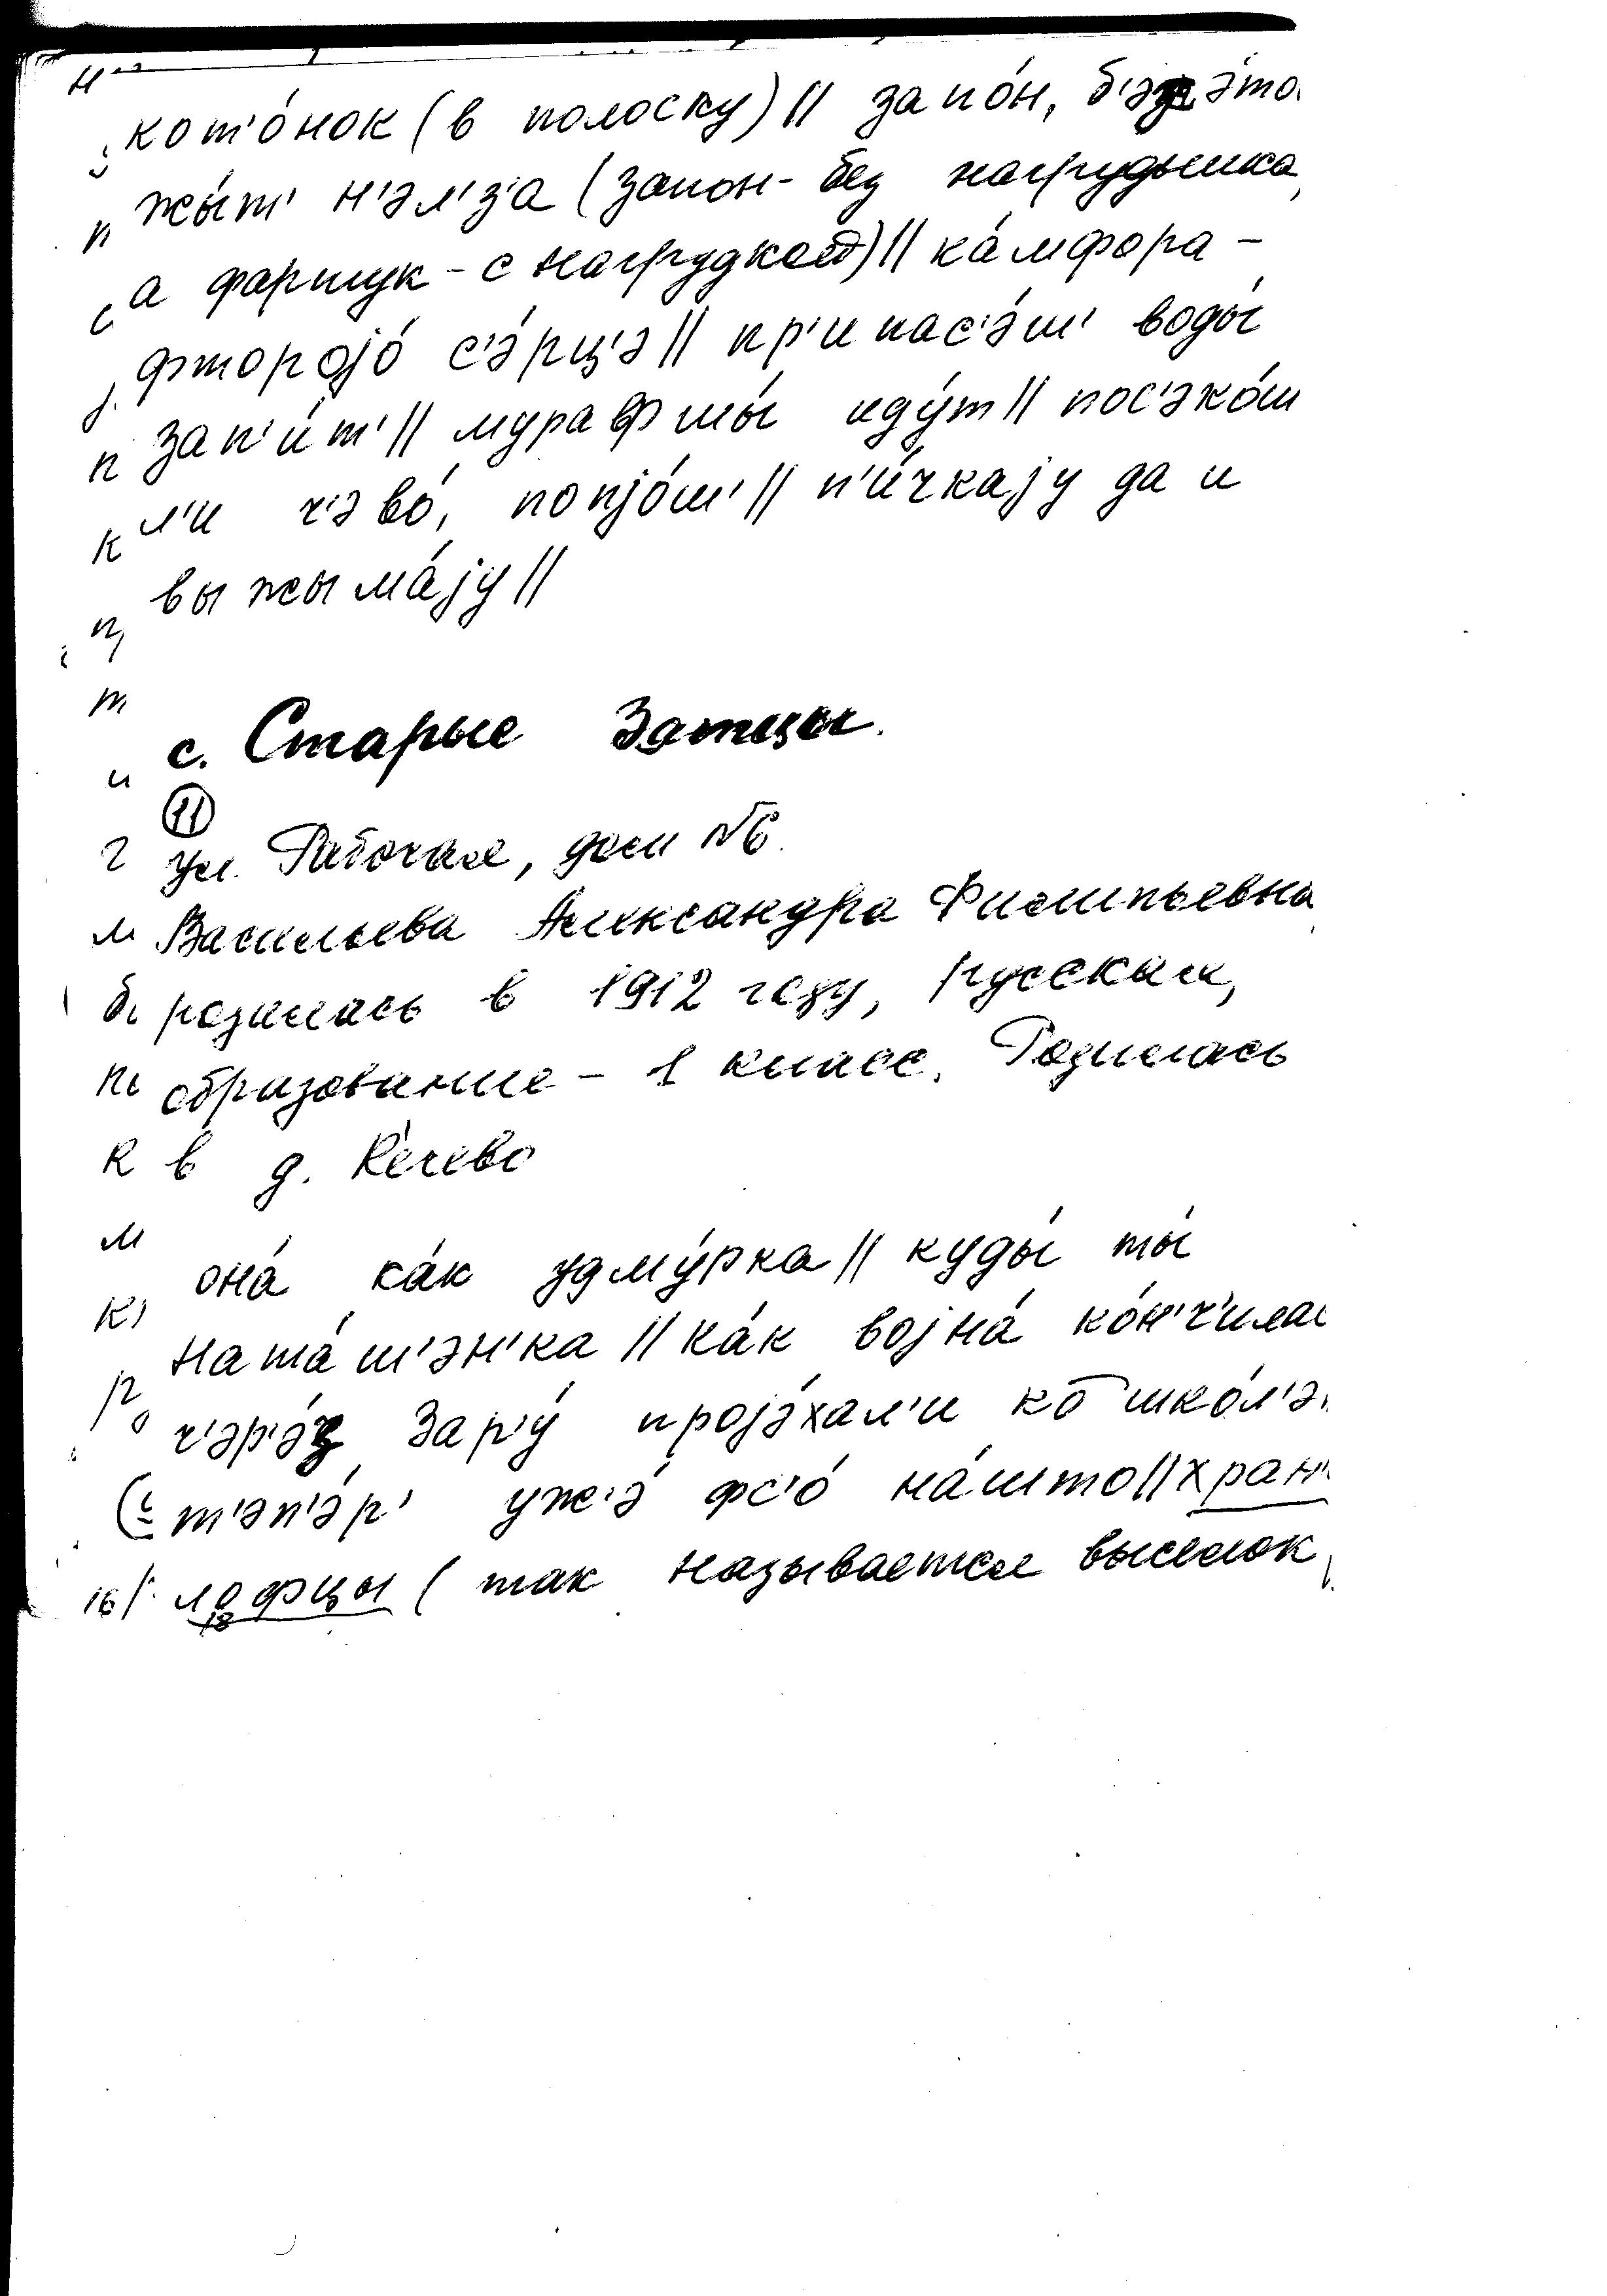 кот'о́нок (в полоску) || запо́н, б'эз э́то
жы́т' н'эл'з'а (запон - без нагрудника,
а фартук - с нагрудкой) || ка́мфора -
фторојо́ с'э́рц'э || пр'ипас'э́ш' воды́
зап'и́т' || мурафшы́ иду́т || пос'эко́ш
л'и ч'эво́, попјо́ш' || п'и́чкају да и
выжыма́ју ||
с. Старые Зятцы.
11
ул. Рабочая, дом №6.
Васильева Александра Филипьевна
родилась в 1912 году, русская,
образование - 1 класс. Родилась
в д. Ке́чево
она́ ка́к удму́рка || куды́ ты́
ната́ш'эн'ка || ка́к војна́ ко́н'ч'илас
ч'эр'э́з Зар'у́ проjэ́хал'и ко шко́л'э
т'эп'э́р' уж'э́ фс'о́ на́што || хран'
лофцы (так называется выселок